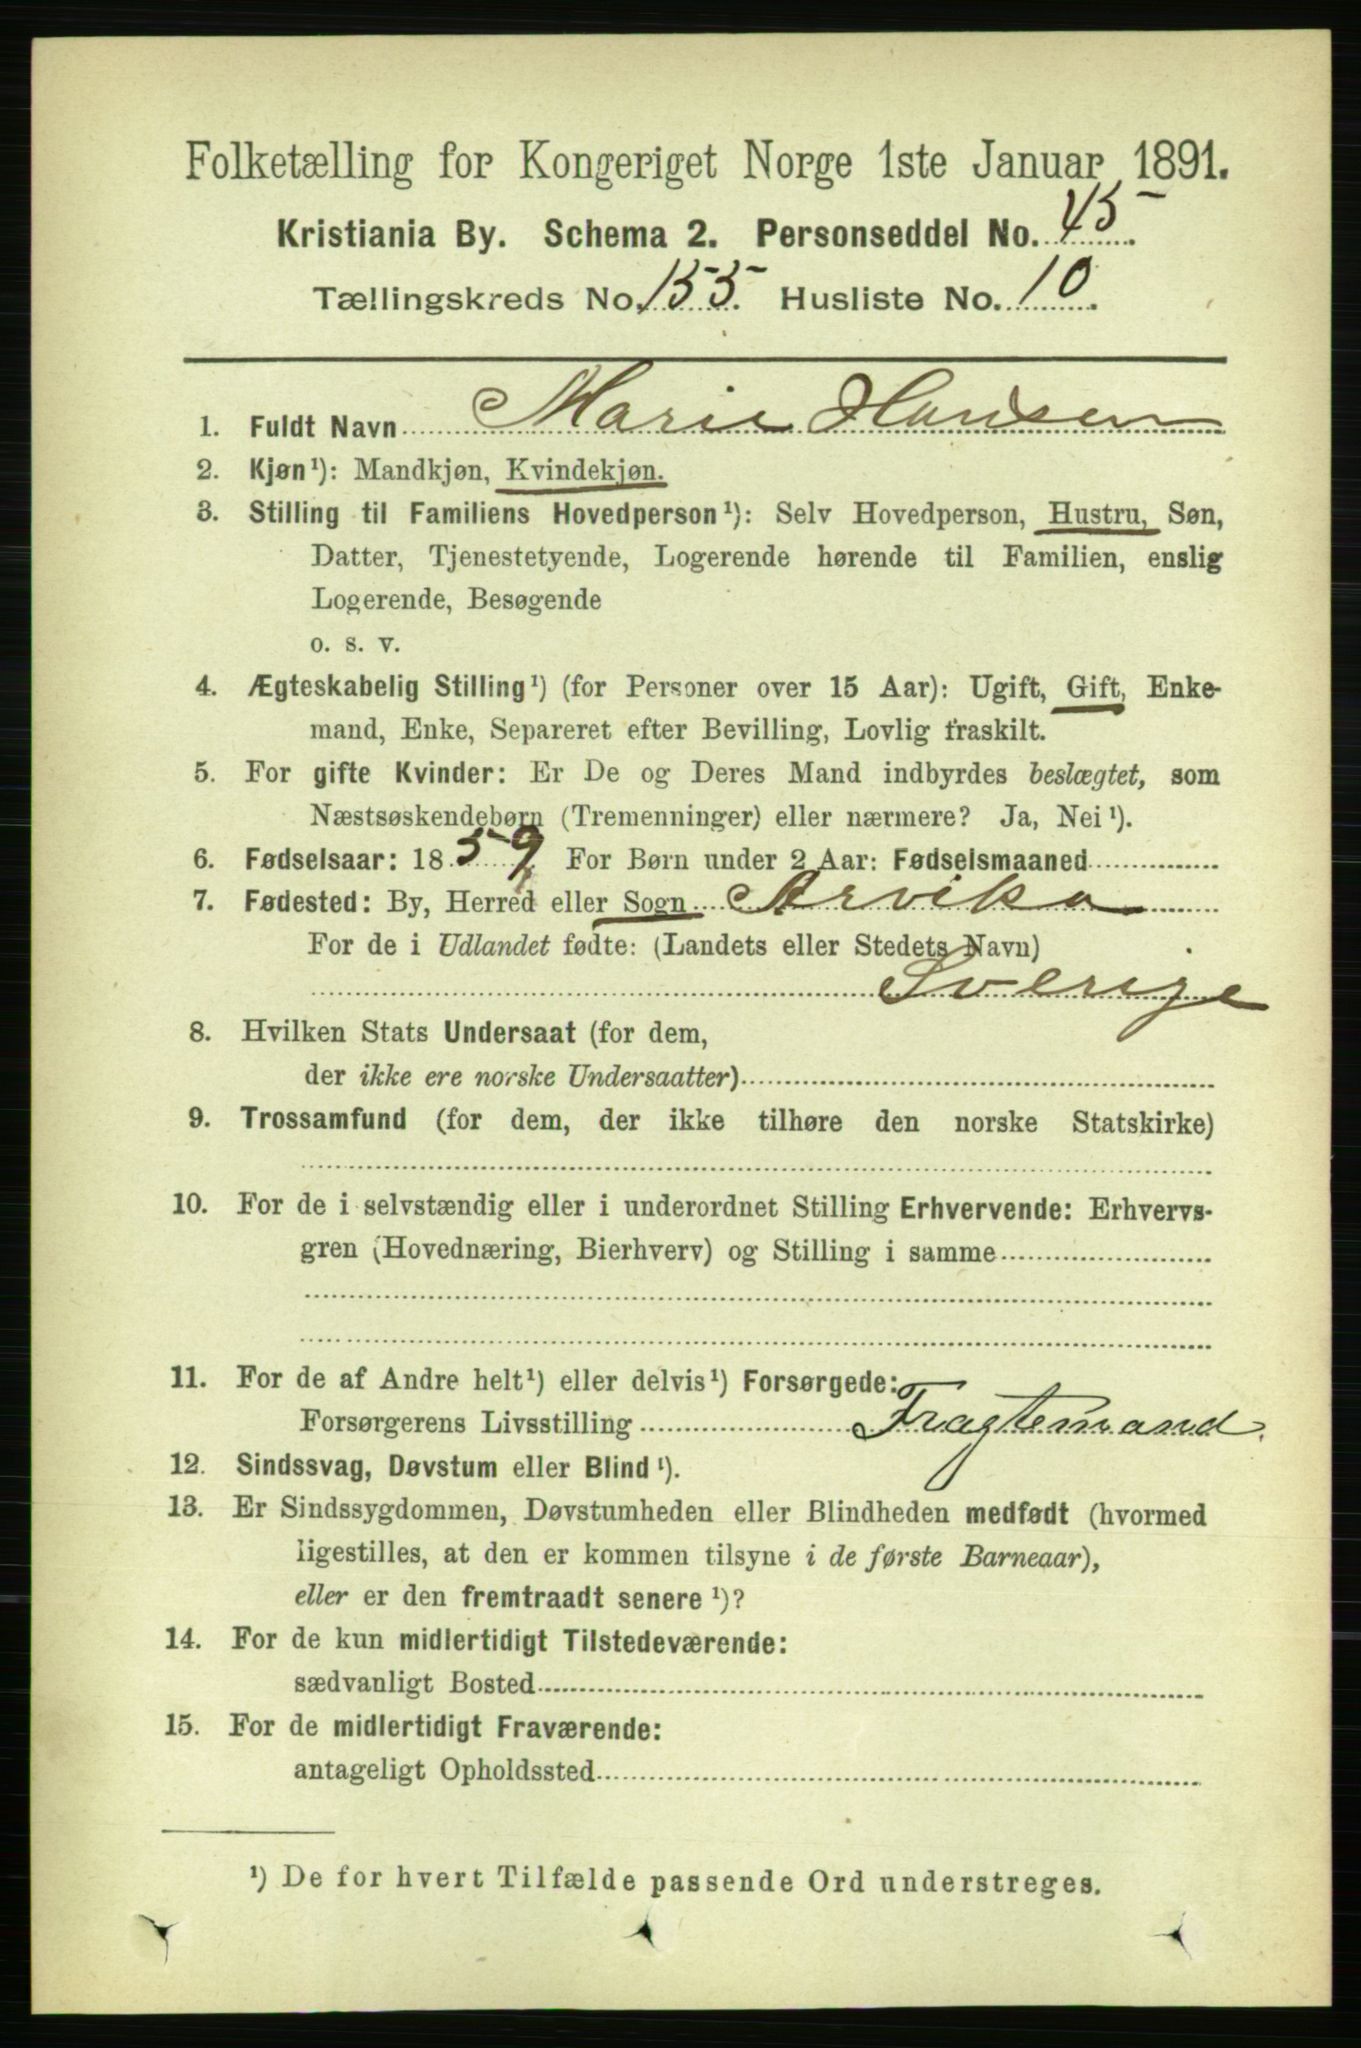 Folketælling for Kongeriget Norge 1ste Januar 1891.
Kristiania By. Schema 2. Personseddel No. 45.
Tællingskreds No. 155. Husliste No. 10.
1. Fuldt Navn Marie Hansen
2. Kjøn¹): Mandkjøn, Kvindekjøn.
3. Stilling til Familiens Hovedperson¹): Selv Hovedperson, Hustru, Søn,
Datter, Tjenestetyende, Logerende hørende til Familien, enslig
Logerende, Besøgende
o. s. v.
4. Ægteskabelig Stilling¹) (for Personer over 15 Aar): Ugift, Gift, Enke-
mand, Enke, Separeret efter Bevilling, Lovlig fraskilt.
5. For gifte Kvinder: Er De og Deres Mand indbyrdes beslægtet, som
Næstsøskendebørn (Tremenninger) eller nærmere? Ja, Nei¹).
6. Fødselsaar: 1859. For Børn under 2 Aar: Fødselsmaaned
7. Fødested: By, Herred eller Sogn Arvika
For de i Udlandet fødte: (Landets eller Stedets Navn)
Sverige
8. Hvilken Stats Undersaat (for dem,
der ikke ere norske Undersaatter)
9. Trossamfund (for dem, der ikke tilhøre den norske Statskirke)
10. For de i selvstændig eller i underordnet Stilling Erhvervende: Erhvervs-
gren (Hovednæring, Bierhverv) og Stilling i samme
11. For de af Andre helt¹) eller delvis¹) Forsørgede:
Forsørgerens Livsstilling Fragtemand.
12. Sindssvag, Døvstum eller Blind¹).
13. Er Sindssygdommen, Døvstumheden eller Blindheden medfødt (hvormed
ligestilles, at den er kommen tilsyne i de første Barneaar),
eller er den fremtraadt senere¹)?
14. For de kun midlertidigt Tilstedeværende:
sædvanligt Bosted
15. For de midlertidigt Fraværende:
antageligt Opholdssted
¹) De for hvert Tilfælde passende Ord understreges.